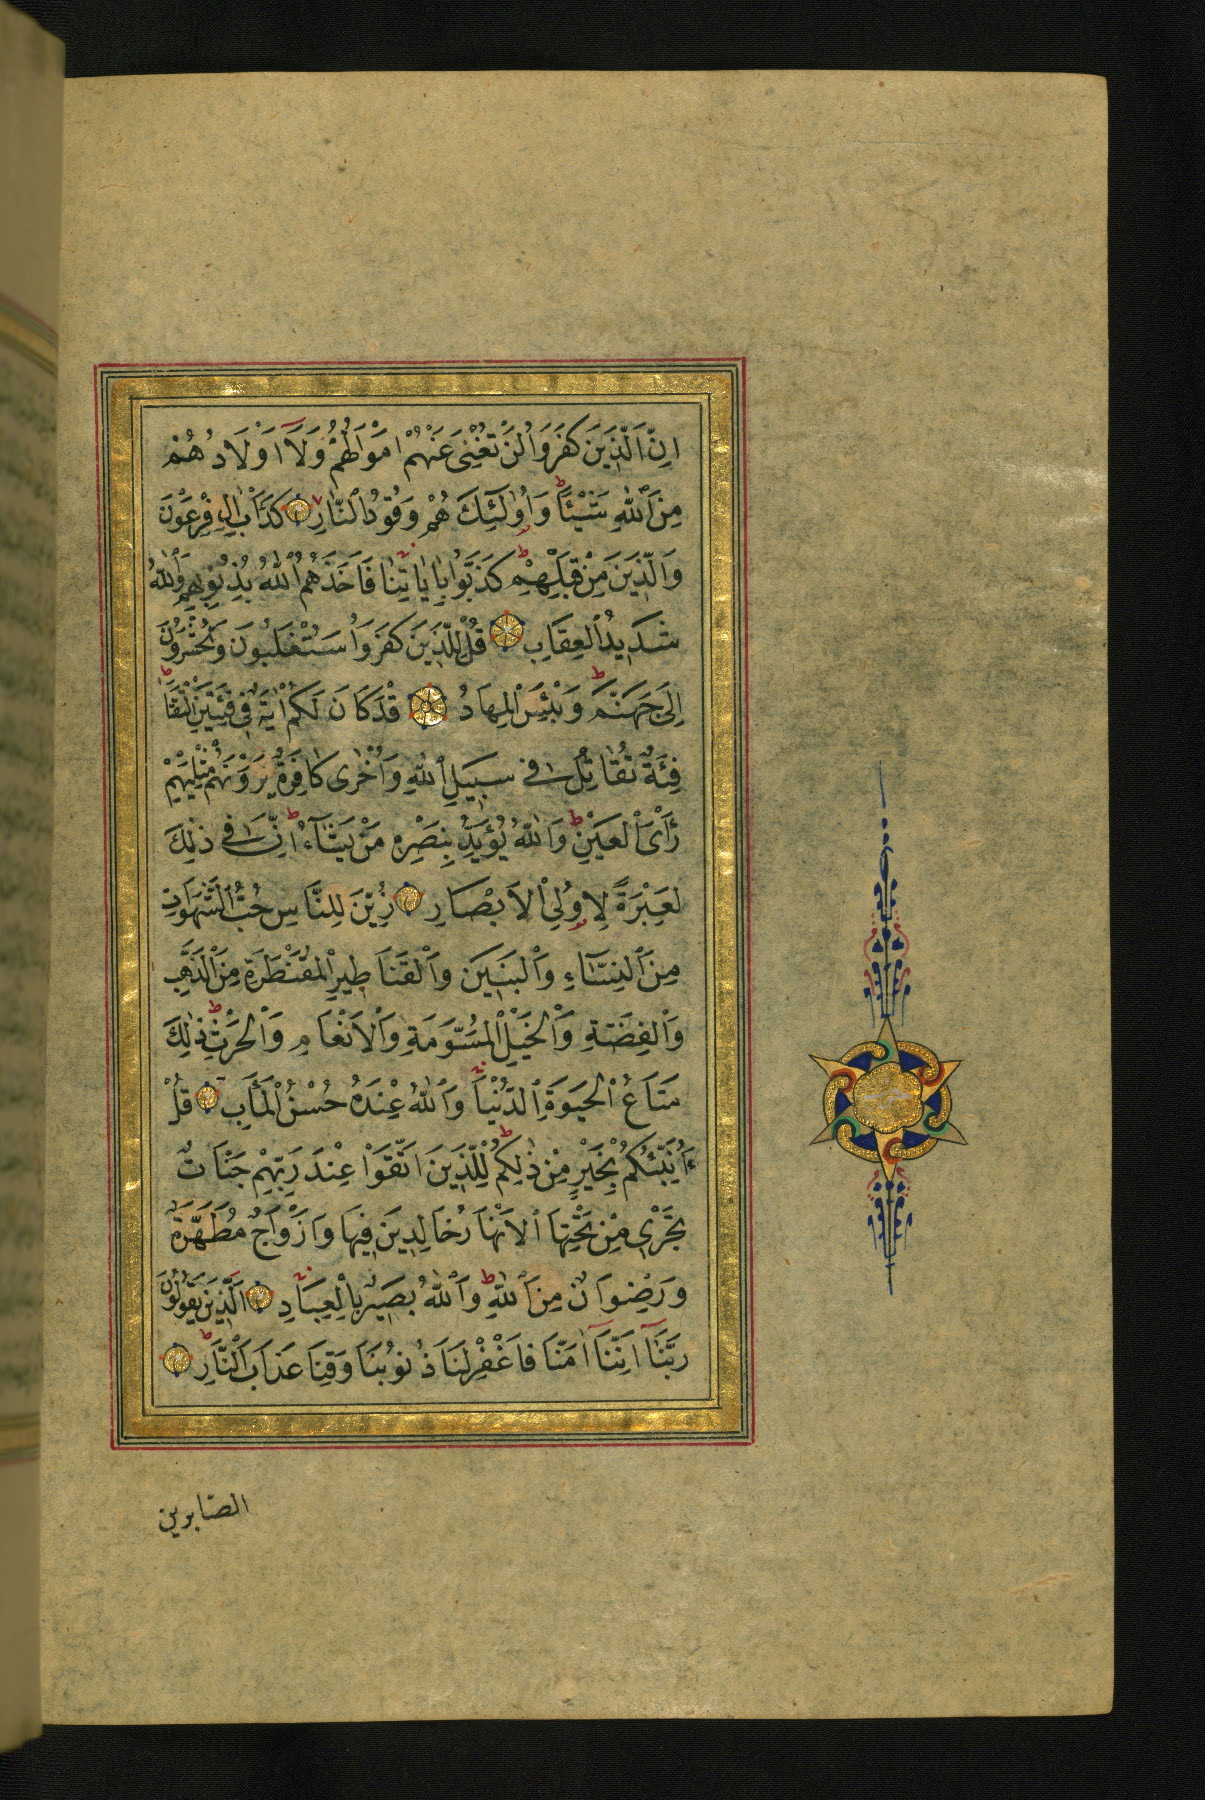 اِنَّ الَّذِينَ كَفَرُوا لَنْ تُغْنِىَ عَنْهُمْ اَمْوَالُهُمْ وَلَآ اَوْلَادُهُمْ
مِنَ اللّٰهِ شَيْئًا وَاُولٰئِكَ هُمْ وَقُودُ النَّارِ كَدَأْبِ اٰلِ فِرْعَوْنَ
وَالَّذِينَ مِنْ قَبْلِهِمْ كَذَّبُوا بِاٰيَاتِنَا فَاَخَذَهُمُ اللّٰهُ بِذُنُوبِهِمْ وَاللّٰهُ
شَدِيدُ الْعِقَابِ قُلْ لِلَّذِينَ كَفَرُوا سَتُغْلَبُونَ وَتُحْشَرُونَ
اِلٰى جَهَنَّمَ وَبِئْسَ الْمِهَادُ قَدْ كَانَ لَكُمْ اٰيَةٌ فِى فِئَتَيْنِ الْتَقَتَا
فِئَةٌ تُقَاتِلُ فِى سَبِيلِ اللّٰهِ وَاُخْرٰى كَافِرَةٌ يَرَوْنَهُمْ مِثْلَيْهِمْ
رَأْىَ الْعَيْنِ وَاللّٰهُ يُؤَيِّدُ بِنَصْرِهِ مَنْ يَشَآءُ اِنَّ فِى ذٰلِكَ
لَعِبْرَةً لِاُولِى الْاَبْصَارِ زُيِّنَ لِلنَّاسِ حُبُّ الشَّهَوَاتِ
مِنَ النِّسَآءِ وَالْبَنِينَ وَالْقَنَاطِيرِ الْمُقَنْطَرَةِ مِنَ الذَّهَبِ
وَالْفِضَّةِ وَالْخَيْلِ الْمُسَوَّمَةِ وَالْاَنْعَامِ وَالْحَرْثِ ذٰلِكَ
مَتَاعُ الْحَيٰوةِ الدُّنْيَا وَاللّٰهُ عِنْدَهُ حُسْنُ الْمَاٰبِ قُلْ
ءَاُنَبِّئُكُمْ بِخَيْرٍ مِنْ ذٰلِكُمْ لِلَّذِينَ اتَّقَوْا عِنْدَ رَبِّهِمْ جَنَّاتٌ
تَجْرِى مِنْ تَحْتِهَا الْاَنْهَارُ خَالِدِينَ فِيهَا وَاَزْوَاجٌ مُطَهَّرَةٌ
وَرِضْوَانٌ مِنَ اللّٰهِ وَاللّٰهُ بَصِيرٌ بِالْعِبَادِ اَلَّذِينَ يَقُولُونَ
رَبَّنَآ اِنَّنَآ اٰمَنَّا فَاغْفِرْ لَنَا ذُنُوبَنَا وَقِنَا عَذَابَ النَّارِ
الصّابرين